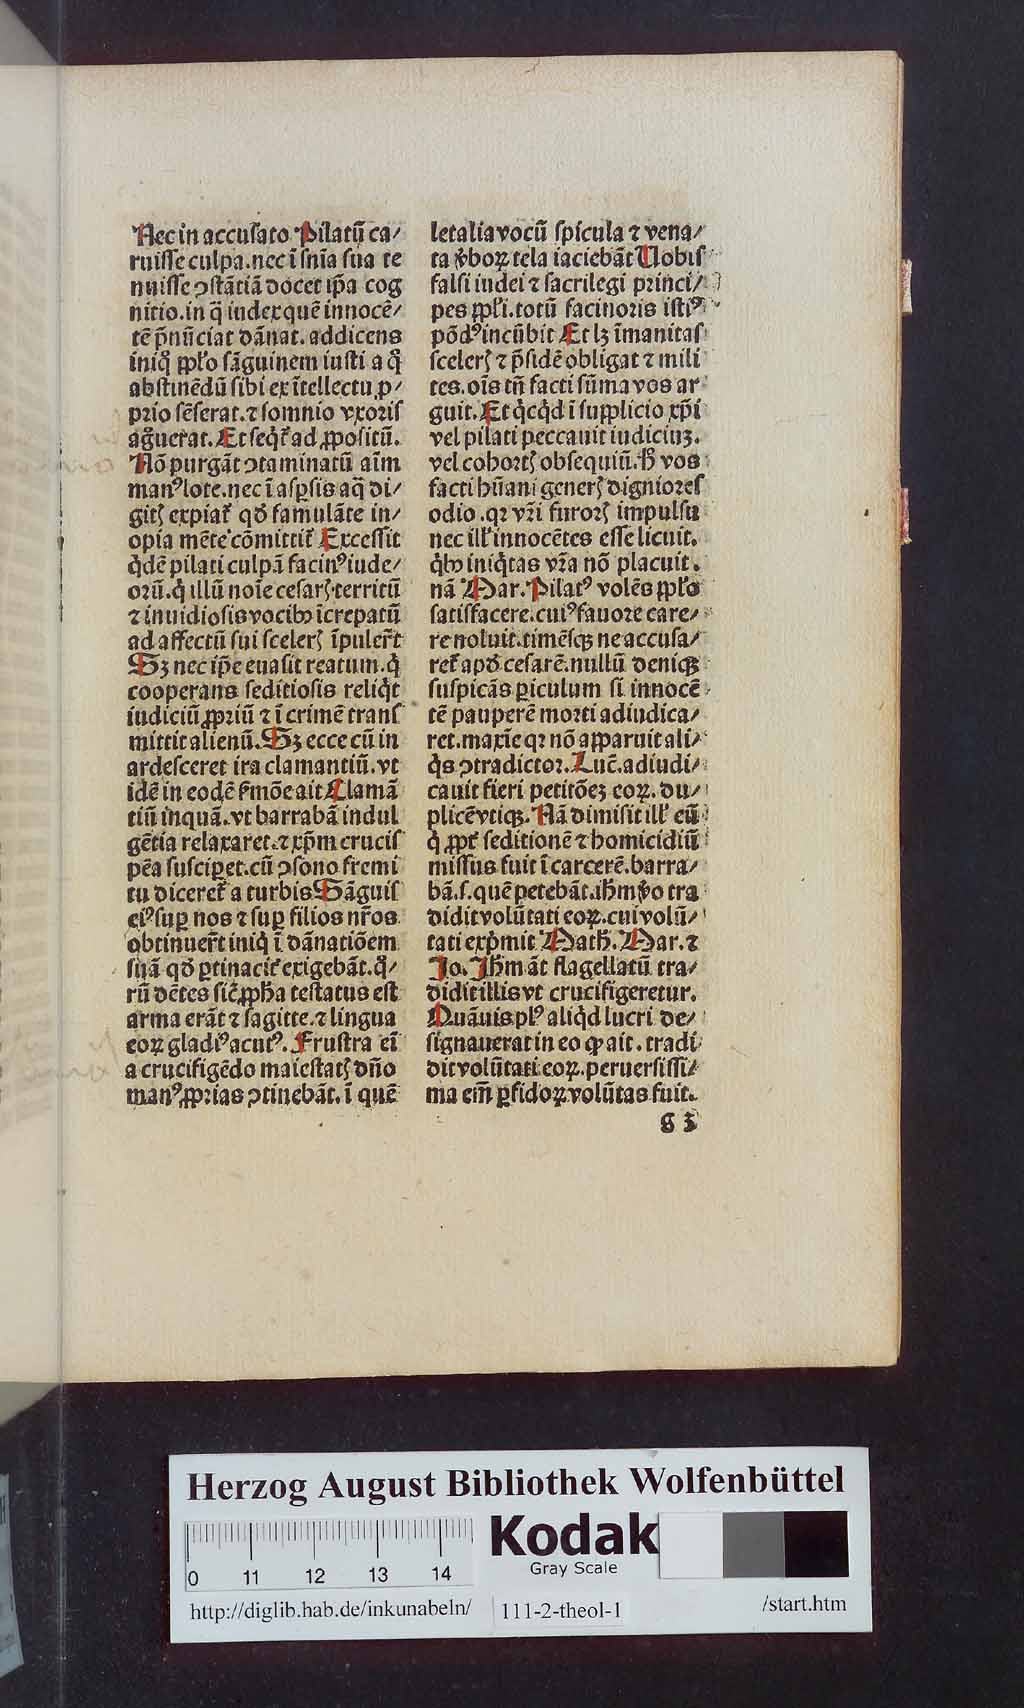 Nec in accusato Pilatū ca/
ruisse culpa.nec ī sn̄ia sua te
nuisse ꝯstātiā docet ip̄a cog
nitio.in q̄ iudex quē innocē/
tē p̄nūciat dānat.addicens
iniqͦ pp̄lo sāguinem iusti a qͦ
abstinēdū sibi ex ītellectu ꝓ/
prio sēserat.⁊ somnio vxoris
agͦuerat.Et seqͥt̄ ad ꝓpositū.
Nō purgāt ꝯtaminatū aīm
manꝰ lote.nec ī aspersis aq̄ di/
gitꝭ expiat̄ qd̄ famulāte in/
opia mēte cōmittit̄ Excessit
qͥdē pilati culpā facinꝰ iude/
orū.qͥ illū noīe cesarꝭ territū
⁊ inuidiosis vocibꝫ īcrepatū
ad affectū sui scelerꝭ īpuler̄t
Sꝫ nec ip̄e euasit reatum.qͥ
cooperans seditiosis reliqͥt
iudiciū ꝓpriū ⁊ ī crimē trans
mittit alienū.Sꝫ ecce cū in
ardesceret ira clamantiū.vt
idē in eodē s̄mōe ait Clamā
tiū inquā.vt barrabā indul
gētia relaxaret.⁊ xp̄m crucis
pēa susciꝑet.cū ꝯsono fremi
tu diceret̄ a turbis Sāguis
eiꝰ suꝑ nos ⁊ suꝑ filios nr̄os
obtinuer̄t iniqͥ ī dānatiōem
suā qd̄ ꝑtinacit̄ exigebāt.qͦ/
rū dētes sic̄ ꝓph̄a testatus est
arma erāt ⁊ sagitte.⁊ lingua
eoꝝ gladiꝰ acutꝰ.Frustra eī
a crucifigēdo maiestatꝭ dn̄o
manꝰ ꝓprias ꝯtinebāt.ī quē
letalia vocū spicula ⁊ vena/
ta v̄boꝝ tela iaciebāt Uobis
falsi iudei ⁊ sacrilegi princi/
pes pp̄li.totū facinoris istiꝰ
pōdꝰ incūbit Et lꝫ īmanitas
scelerꝭ ⁊ p̄sidē obligat ⁊ mili
tes.oīs tn̄ facti sūma vos ar
guit.Et qͥcqͥd ī supplicio xp̄i
vel pilati peccauit iudiciuꝫ.
vel cohortꝭ obsequiū.h̄ vos
facti hūani generꝭ digniores
odio.qꝛ vr̄i furorꝭ impulsu
nec ill̄ innocētes esse licuit.
qͥbꝫ iniqͥtas vr̄a nō placuit.
nā Mar.Pilatꝰ volēs pp̄lo
satisfacere.cuiꝰ fauore care/
re noluit.timēsqꝫ ne accusa/
ret̄ apd̄ cesarē.nullū deniqꝫ
suspicās ꝑiculum si innocē
tē pauperē morti adiudica/
ret.maxīe qꝛ nō apparuit ali/
qͥs ꝯtradictor.Luc̄.adiudi/
cauit fieri petitōeꝫ eoꝝ.du/
plicē vtiqꝫ.Nā dimisit ill̄ eū
qͥ ꝓpt̄ seditionē ⁊ homicidiū
missus fuit ī carcerē.barra/
bā.s.quē petebāt.ih̄m v̄o tra
didit volūtati eoꝝ.cui volū/
tati exp̄mit Math̄.Mar.⁊
Jo.Jh̄m āt flagellatū tra/
didit illis vt crucifigeretur.
Quāuis plꝰ aliqͥd lucri de/
signauerat in eo ꝙ ait.tradi
dit volūtati eoꝝ.peruersissi/
ma eīn ꝑfidoꝝ volūtas fuit.
g 3
Herzog August Bibliothek Wolfenbüttel
Kodak
Gray Scale
0 11 12 13 14
http://diglib.hab.de/inkunabeln/ 111-2-theol-1 /start.htm